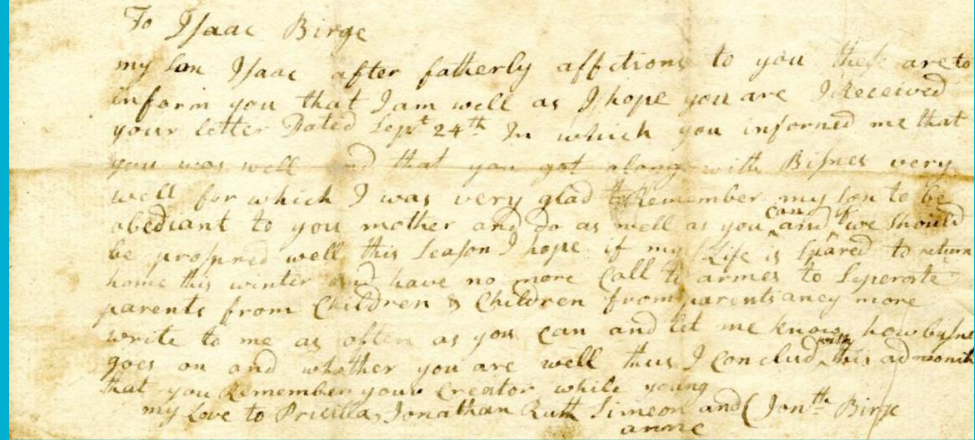 To Isaac Birge
my son Isaac after fatherly affctions to you these are to
inform you that I am well as I hope you are I Received
your letter Dated Sept 24th In which you informed me that
you was well and that you got along with Bisnes very
well for which I was very glad Remember my son to be
obediant to you mother and do as well as you can and if we should
be prospred well this Season I hope if my Life is Spared to return
home this winter and have no more Call to armes to Seperate
parents from Children & Children from parents aney more
write to me as often as you can and let me know how
goes on and whether you are well thus I conclud with this
that you Remember your Creator while young
my Love to Pricilla Jonathan Ruth Simeon and (Jonth Birge
anne